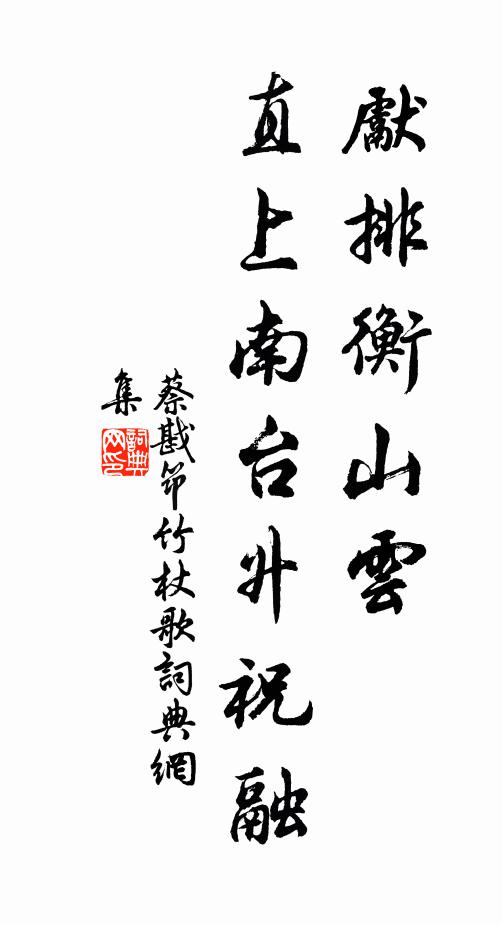 獻排衡山雲
直上南台升祝融
蔡戡笻竹杖歌詞典網
集
詞典
网印